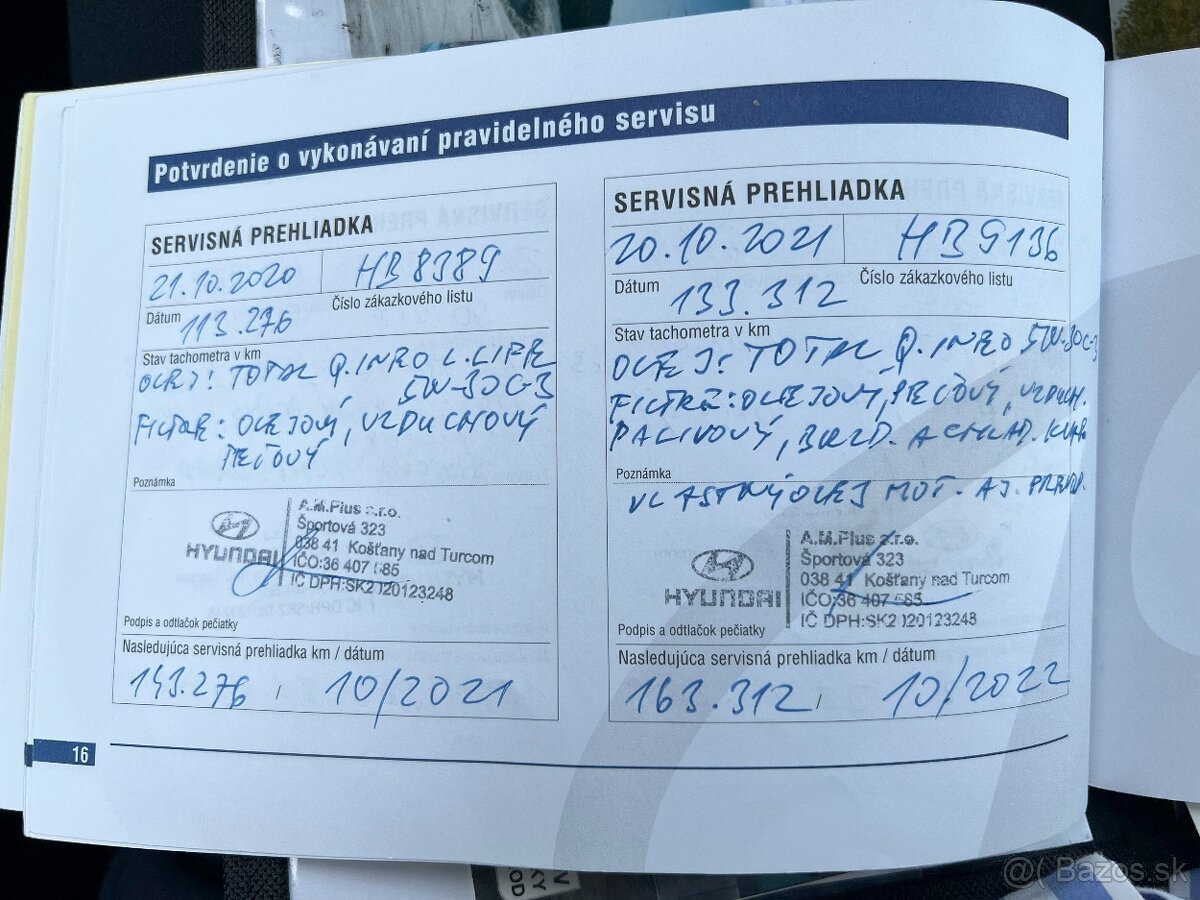 Potvrdenie o vykonávaní pravidelného servisu
SERVISNÁ PREHLIADKA
21.10.2020 HB 8389
Dátum Číslo zákazkového listu
113.276
Stav tachometra v km
OLEJ: TOTAL Q.INEO L.LIFE
5W-30C-3
FILTER: OLEJOVÝ, VZDUCHOVÝ
PEĽOVÝ
Poznámka
HYUNDAI
A.M.Plus s.r.o.
Športová 323
038 41 Košťany nad Turcom
IČO:36 407 585
IČ DPH:SK2020123248
Podpis a odtlačok pečiatky
Nasledujúca servisná prehliadka km / dátum
143.276 / 10/2021
SERVISNÁ PREHLIADKA
20.10.2021 HB 9136
Dátum Číslo zákazkového listu
133.312
Stav tachometra v km
OLEJ: TOTAL Q.INEO 5W-30C-3
FILTRE: OLEJOVÝ, PEĽOVÝ, VZDUCH.
PALIVOVÝ, BRZD. A CHLAD. KVAP.
Poznámka
VLASTNÝ OLEJ MOT. AJ. PREVOD.
HYUNDAI
A.M.Plus s.r.o.
Športová 323
038 41 Košťany nad Turcom
IČO:36 407 585
IČ DPH:SK2020123248
Podpis a odtlačok pečiatky
Nasledujúca servisná prehliadka km / dátum
163.312 / 10/2022
16
@( Bazos.sk